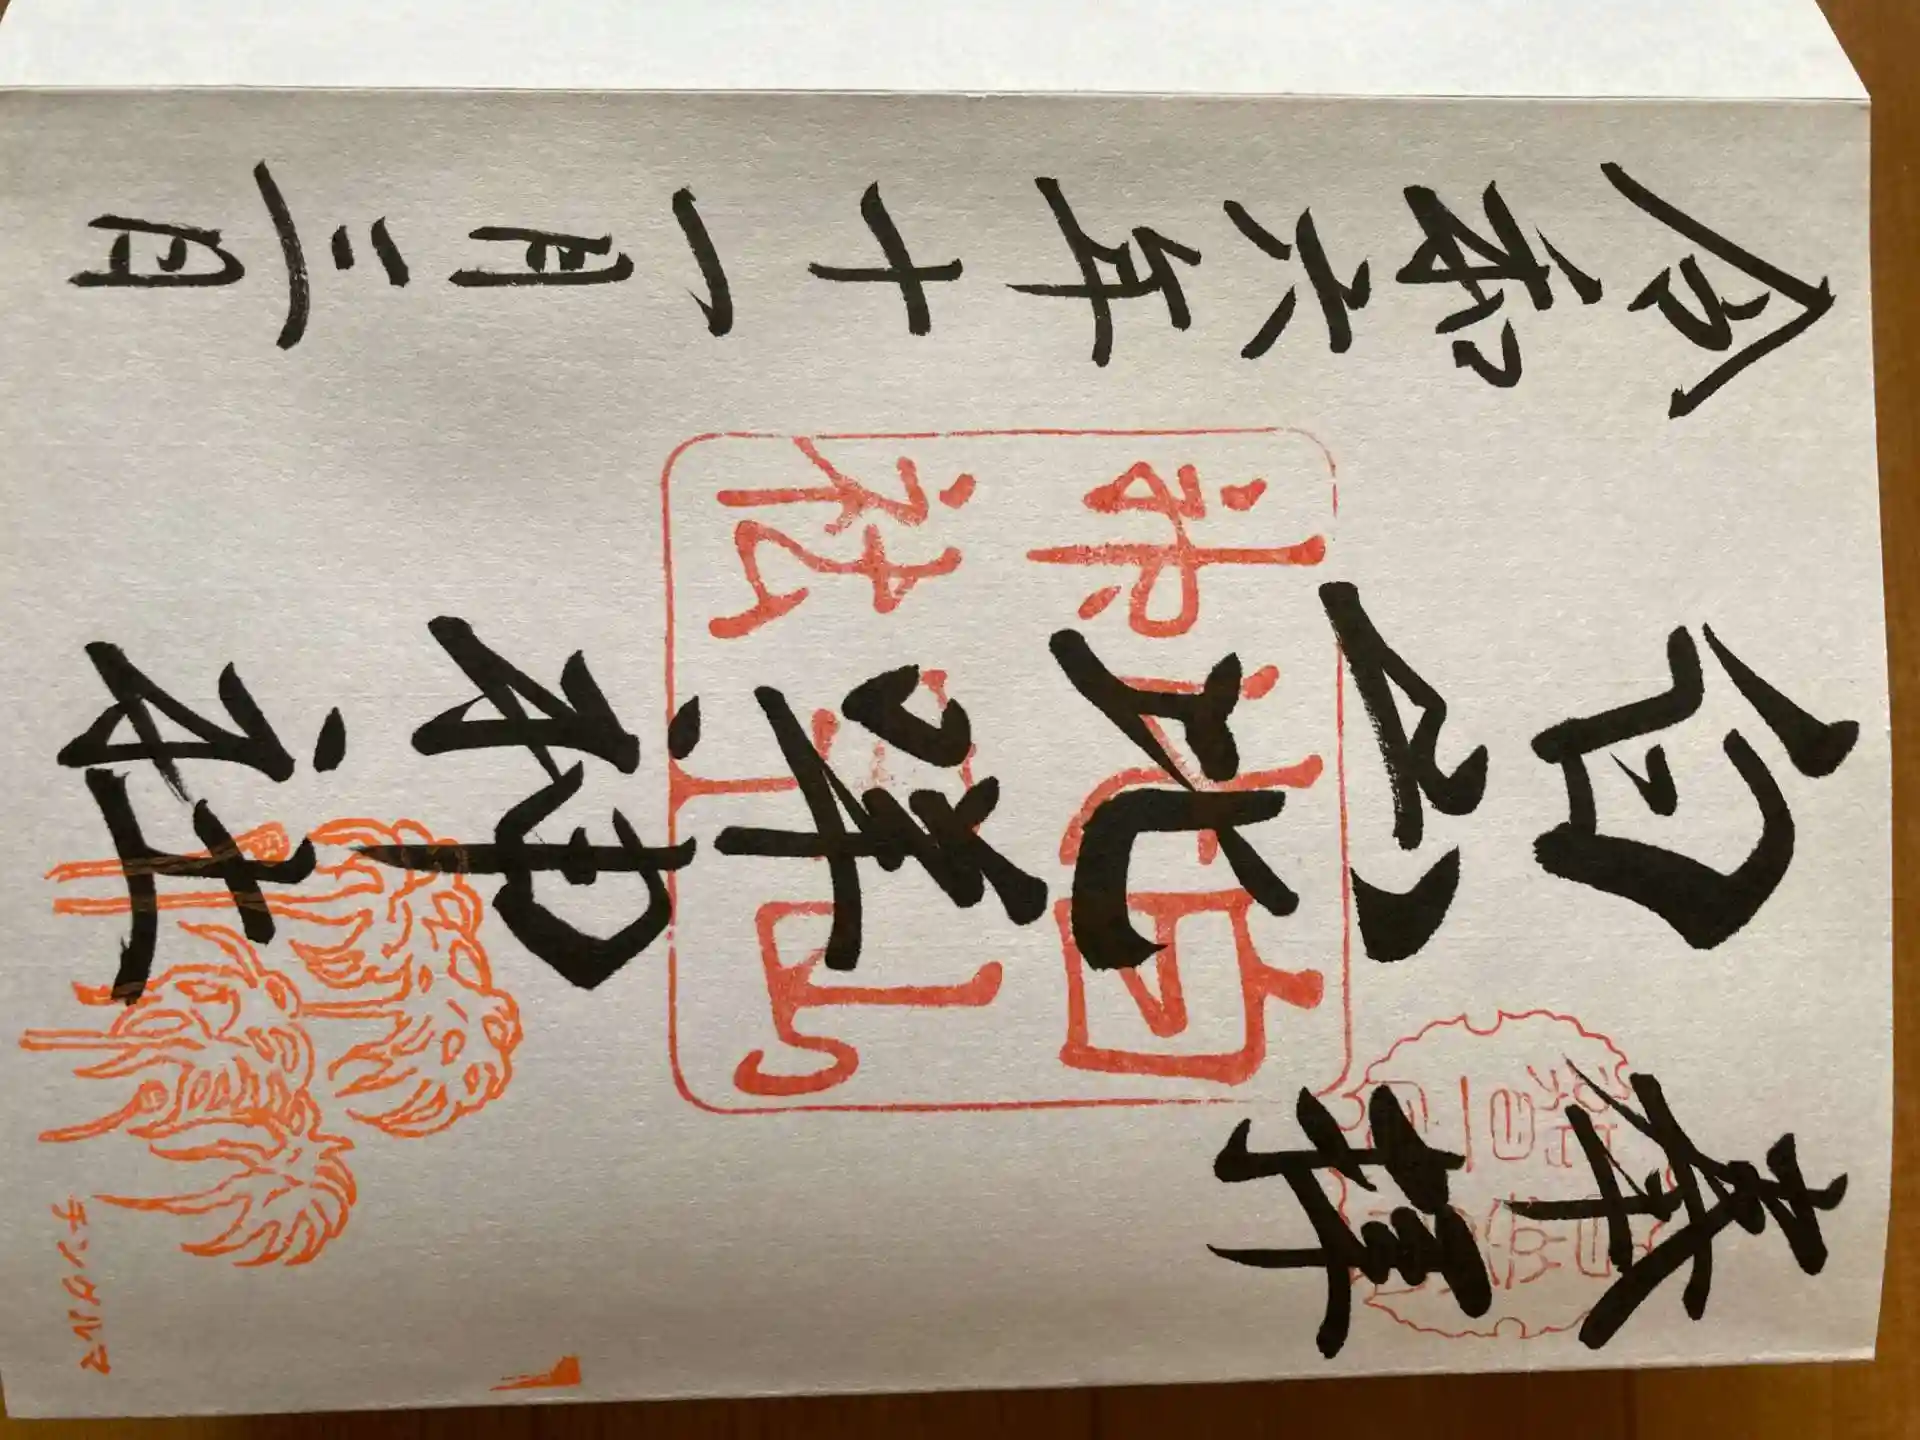 奉拝
白山比咩神社
令和六年十一月三日
白山
比咩
神社
チングルマ